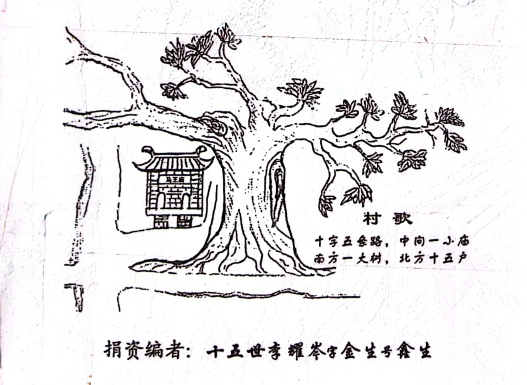 马王庙
村 歌
十字五岔路，中间一小庙
南方一大树，北方十五户
捐资编者：十五世李耀岑字金生号鑫生